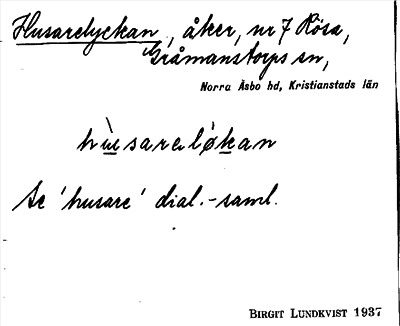 Husarelyckan, åker, nr 7 Rösa,
Gråmanstorps sn,
Norra Åsbo hd, Kristianstads län
hùsareløkan
Se 'husare' dial.-saml.
BIRGIT LUNDKVIST 1937